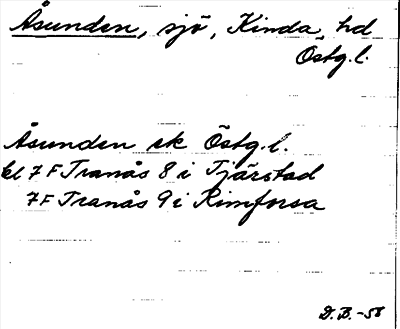 Åsunden, sjö, Kinda hd
Östg.l.
Åsunden ek Östg.l.
bl 7 F Tranås 8 i Tjärstad
7 F Tranås 9 i Rimforsa
D.B. -58